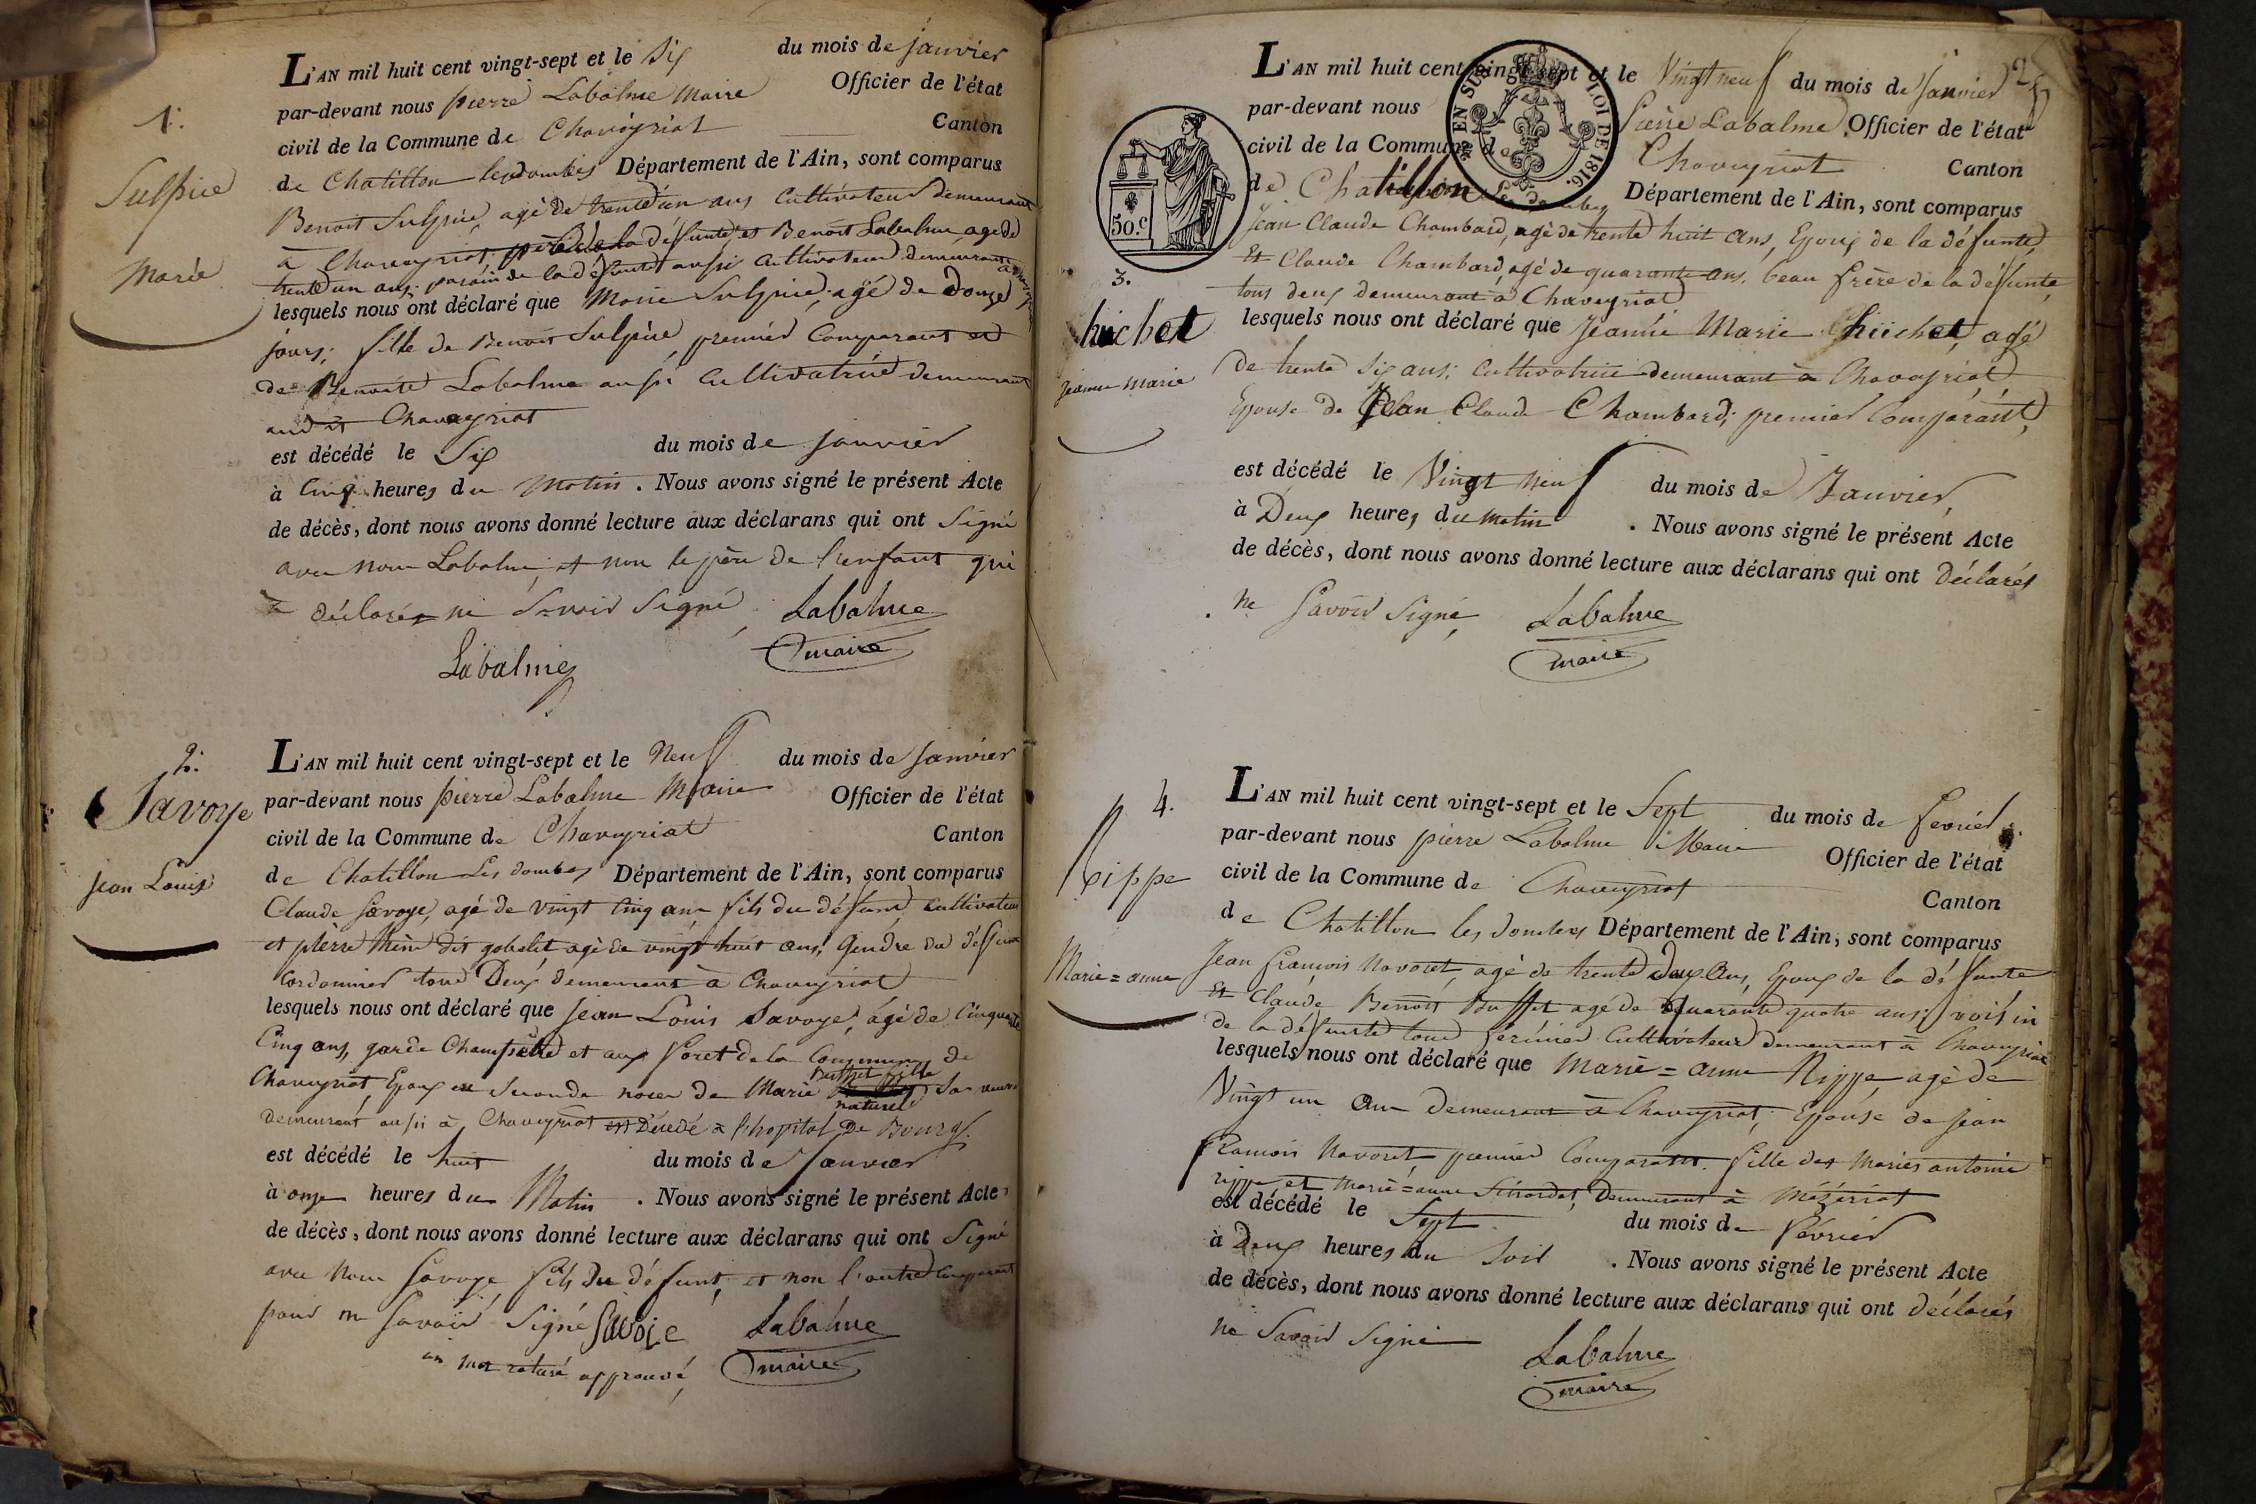 1.
Sulpice
Marie
L'AN mil huit cent vingt-sept et le Six du mois de janvier
par-devant nous pierre Labalme Maire Officier de l'état
civil de la Commune de Chaveyriat Canton
de Chatillon lesdombes Département de l'Ain, sont comparus
Benoit Sulpice, agé de trente un ans Cultivateur demeurant
à Chaveyriat, père de la défunte, et Benoit Labalme, agé de
trente un ans, parain de la défunte aussi Cultivateur demeurant
lesquels nous ont déclaré que Marie Sulpice, agé de Douze
jours; fille de Benoit Sulpice premier Comparant et
de Benoite Labalme aussi Cultivatrice demeurant
audit Chaveyriat
est décédé le Six du mois de janvier
à Cinq heures du Matin. Nous avons signé le présent Acte
de décès, dont nous avons donné lecture aux déclarans qui ont Signé
avec nous Labalme, et non le père de l'enfant qui
a déclarés ne Savoir Signé, Labalme
maire
Labalme
2.
Savoye
Jean Louis
L'AN mil huit cent vingt-sept et le Neuf du mois de Janvier
par-devant nous pierre Labalme Maire Officier de l'état
civil de la Commune de Chaveyriat Canton
de Chatillon Les dombes Département de l'Ain, sont comparus
Claude Savoye, agé de vingt Cinq ans fils du défunt cultivateur
et pièrre dit gobelet, agé de vingt huit ans, Gendre du
Cordonnier tous Deux demeurant à Chaveyriat
lesquels nous ont déclaré que Jean Louis Savoye, agé de Cinquante
Cinq ans, garde Champêtre et aux foret de la Commune de
Chaveyriat, Epoux en Seconde noces de Marie Buffet fille
naturel Sa veuve
demeurant aussi à Chaveyriat est Décédé a l'hopital De Bourg.
est décédé le huit du mois de Janvier
à onze heures du Matin. Nous avons signé le présent Acte
de décès, dont nous avons donné lecture aux déclarans qui ont Signé
avec Nous Savoye, fils Du défunt, et non l'autre Comparant
pour ne Savoir Signé Savoie Labalme
un mot raturé approuvé, maire
25
EN SUS LOI DE 1816.
50.c
3.
hüchet
Jeanne Marie
L'AN mil huit cent vingt-sept et le Vingt neuf du mois de Janvier
par-devant nous Pierre Labalme Officier de l'état
civil de la Commune de Chaveyriat Canton
de Chatillon Les dombes Département de l'Ain, sont comparus
Jean Claude Chambard, agé de trente huit ans, Epoux de la défunte,
Et Claude Chambard, agé de quarante ans, beau frère de la défunte,
tous deux demeurant à Chaveyriat
lesquels nous ont déclaré que Jeanne Marie hüchet, agé
de trente Six ans; Cultivatrice demeurant à Chaveyriat
Epouse de Jean Claude Chambard; premier Comparant,
est décédé le Vingt neuf du mois de Janvier,
à Deux heures du matin. Nous avons signé le présent Acte
de décès, dont nous avons donné lecture aux déclarans qui ont Déclarés
ne Savoir Signé, Labalme
maire
4.
Rippe
Marie=anne
L'AN mil huit cent vingt-sept et le Sept du mois de fevrier
par-devant nous pierre Labalme Maire Officier de l'état
civil de la Commune de Chaveyriat Canton
de Chatillon les dombes Département de l'Ain, sont comparus
Jean françois Navoret, agé de trente Deux Ans, Epoux de la défunte
Et Claude Benoit Buffet agé de quarante quatre ans; voisin
de la défunte tous Cultivateur demeurant à Chaveyriat
lesquels nous ont déclaré que Marie=anne Rippe agé de
Vingt un Ans Demeurant à Chaveyriat, Epouse de Jean
françois Navoret premier Comparant. fille des Mariés antoine
rippe, et Marie=anne Demeurant à Mézériat
est décédé le Sept du mois de Février
à Deux heures du Soir. Nous avons signé le présent Acte
de décès, dont nous avons donné lecture aux déclarans qui ont déclarés
ne Savoir Signé Labalme
maire